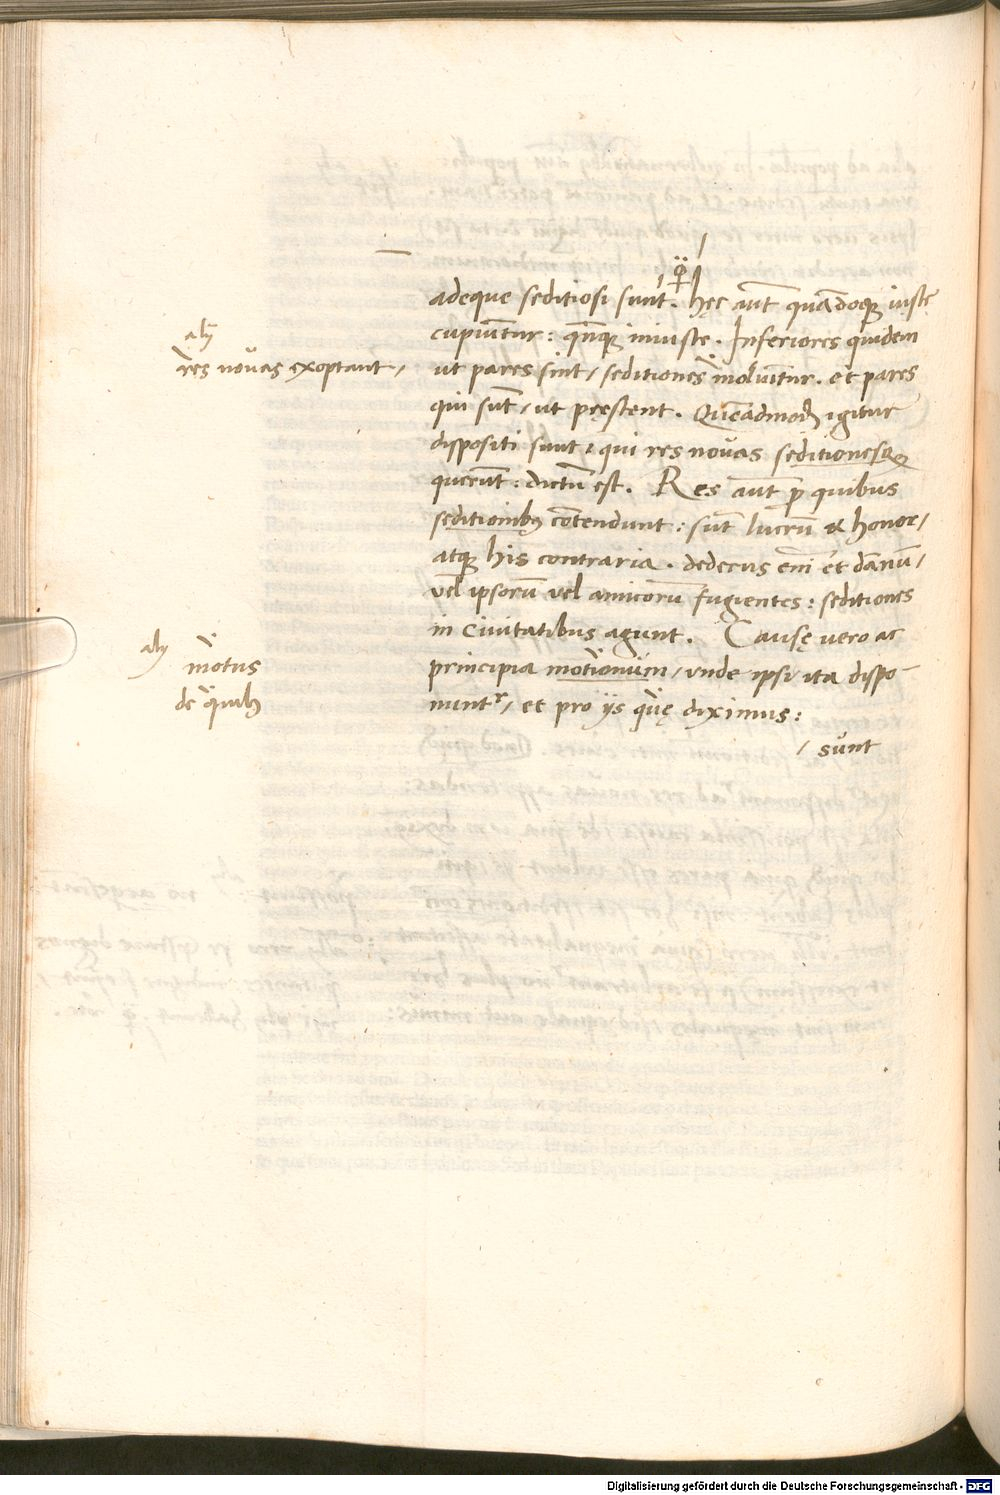 adeque seditiosi sunt. hęc aūt quādoq; iuste
cupiūtur: qn̄q; iniuste. Inferiores quidem
ut pares sint, seditiones moluūtur. et pares
qui sūt, ut pręstent. Quēadmod igitur
dispositi sunt, qui res novas seditionesq;
querūt: dictū est. Res aūt p quibus
seditionibꝫ cōtendunt: sūt lucrū & honor,
atq; his contraria. dedecus eni et dānū,
vel ipsorū vel amicorū fugientes: seditiones
in Civitatibus agunt. Causę vero ac
principia motionum, unde ipsi ita dispo
nuntr, et pro ijs quę diximus:
sunt
alij
res novas exoptant,
alij motus
de quibꝫ
Digitalisierung gefördert durch die Deutsche Forschungsgemeinschaft - DFG